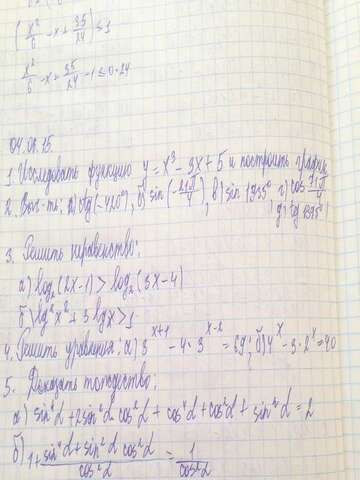 ( x²/6 - x + 35/24 ) ≤ 1
x²/6 - x + 35/24 - 1 ≤ 0 · 24
1. Исследовать функцию y = x³ - 3x + 5 и построить график
2. Выч-ть: а) ctg(-420°), б) sin(-21π/4), в) sin 1935° г) cos 71π/4
д) tg 1395°
3. Решить неравенство:
а) log₂(2x-1) > log₂(3x-4)
б) lg²x² + 3 lgx > 1
4. Решить уравнения: а) 3^(x+1) - 4·3^(x-2) = 69; б) 4^x - 3·2^x = 40
5. Доказать тождество:
а) sin⁴α + 2sin²α cos²α + cos⁴α + cos²α + sin²α = 2
б) 1 + (sin⁴α + sin²α cos²α)/cos²α = 1/cos²α